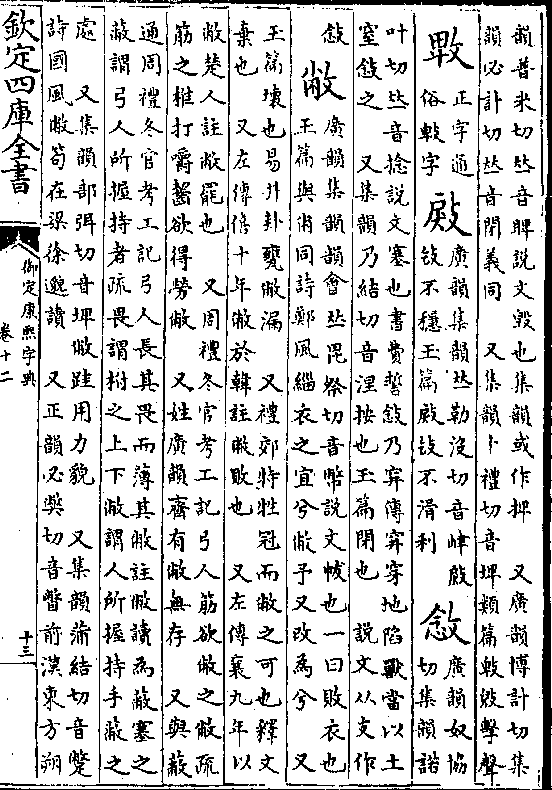 韻普米切𠀤音睥說文毀也集韻或作捭　又廣韻博計切集
韻必計切𠀤音閉義同　又集韻卜禮切音埤類篇𢾱毀擊聲
正字通
俗敤字
㪐
廣韻集韻𠀤勒沒切音㟁㪐
㪐㪇不穩玉篇㪐㪇不滑利
敜
廣韻奴協
切集韻諾
叶切𠀤音捻說文塞也書費誓敜乃穽傳穽穿地陷獸當以土
窒敜之　又集韻乃結切音涅按也玉篇閉也　說文从攴作
敜
敝
廣韻集韻韻會𠀤毘祭切音幣說文帗也一曰敗衣也
玉篇與㡀同詩鄭風緇衣之宜兮敝予又改為兮　又
玉篇壞也易井卦甕敝漏　又禮郊特牲冠而敝之可也釋文
棄也　又左傳僖十年敝於韓註敝敗也　又左傳襄九年以
敝楚人註敝罷也　又周禮冬官考工記弓人筋欲敝之敝疏
筋之椎打嚼齧欲得勞敝　又姓廣韻齊有敝無存　又與蔽
通周禮冬官考工記弓人長其畏而薄其敝註敝讀為蔽塞之
蔽謂弓人所握持者疏畏謂柎之上下敝謂人所握持手蔽之
處　又集韻部弭切音埤敝跬用力貌　又集韻蒲結切音蹩
詩國風敝笱在梁徐邈讀　又正韻必獘切音瞥前漢東方朔
欽定四庫全書
御定康熙字典
卷十二
十三